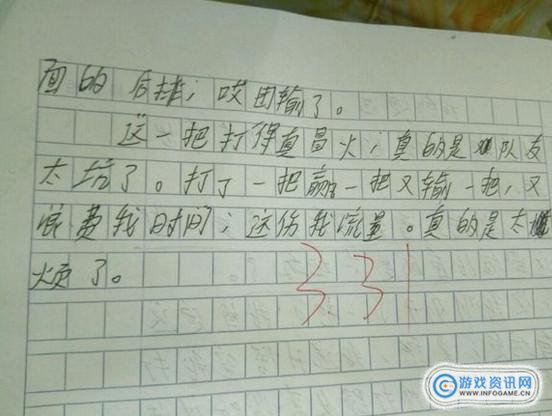 面的后排；哎团输了。
这一把打得真冒火；真的是队友
太坑了。打了一把赢一把又输一把，又
浪费我时间；这伤我流量。真的是太
烦了。
331
游戏资讯网
WWW.INFOGAME.CN